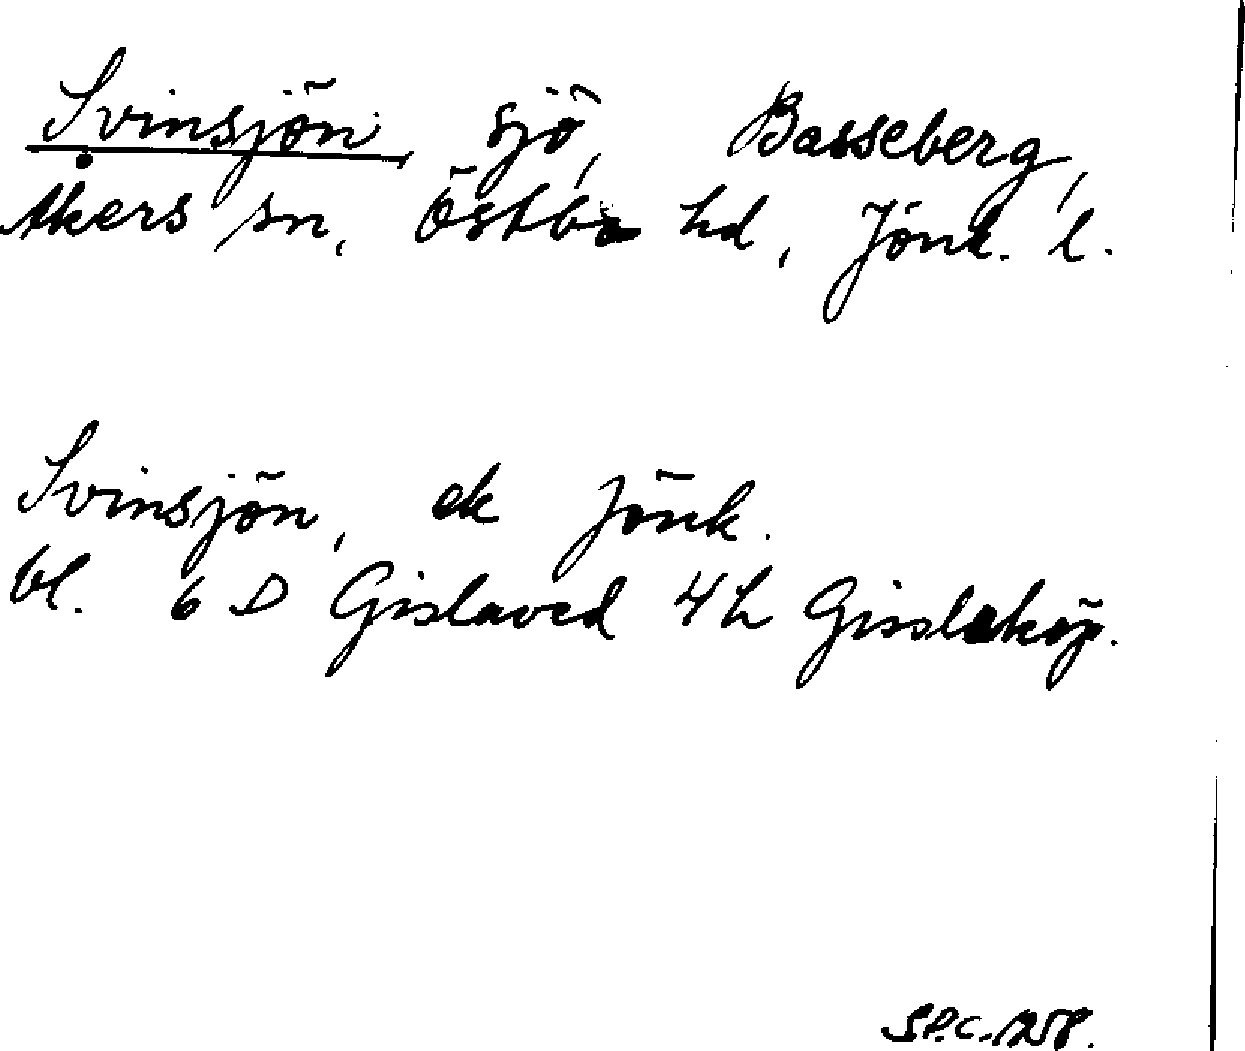 Svinsjön sjö, Basseberg,
Åkers sn, Östbo hd, Jönk. l.
Svinsjön, ek Jönk.
bl. 6 D Gislaved 4 h Gisslaköp.